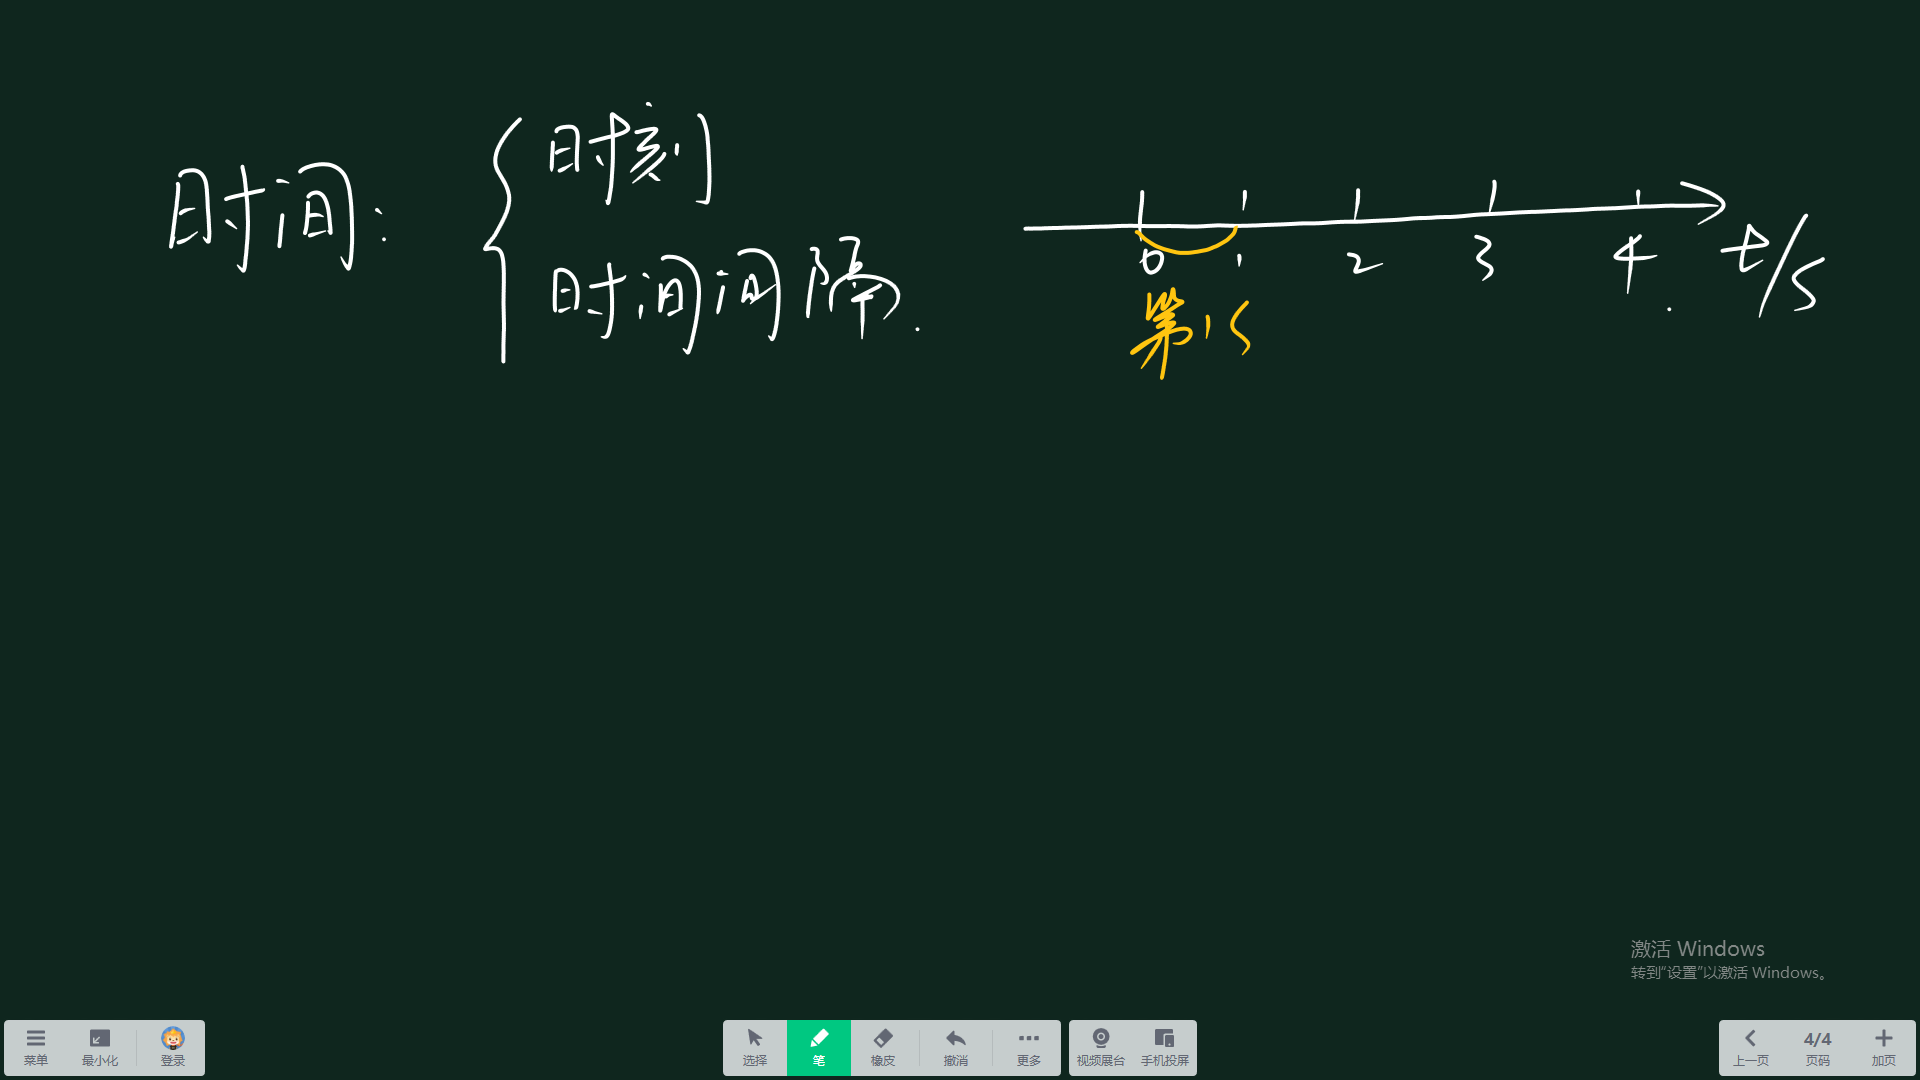 时间：
时刻
时间间隔.
0 1 2 3 4 t/s
第1s
激活 Windows
转到“设置”以激活 Windows。
菜单 最小化 登录 选择 笔 橡皮 撤消 更多 视频展台 手机投屏 上一页 4/4 页码 加页